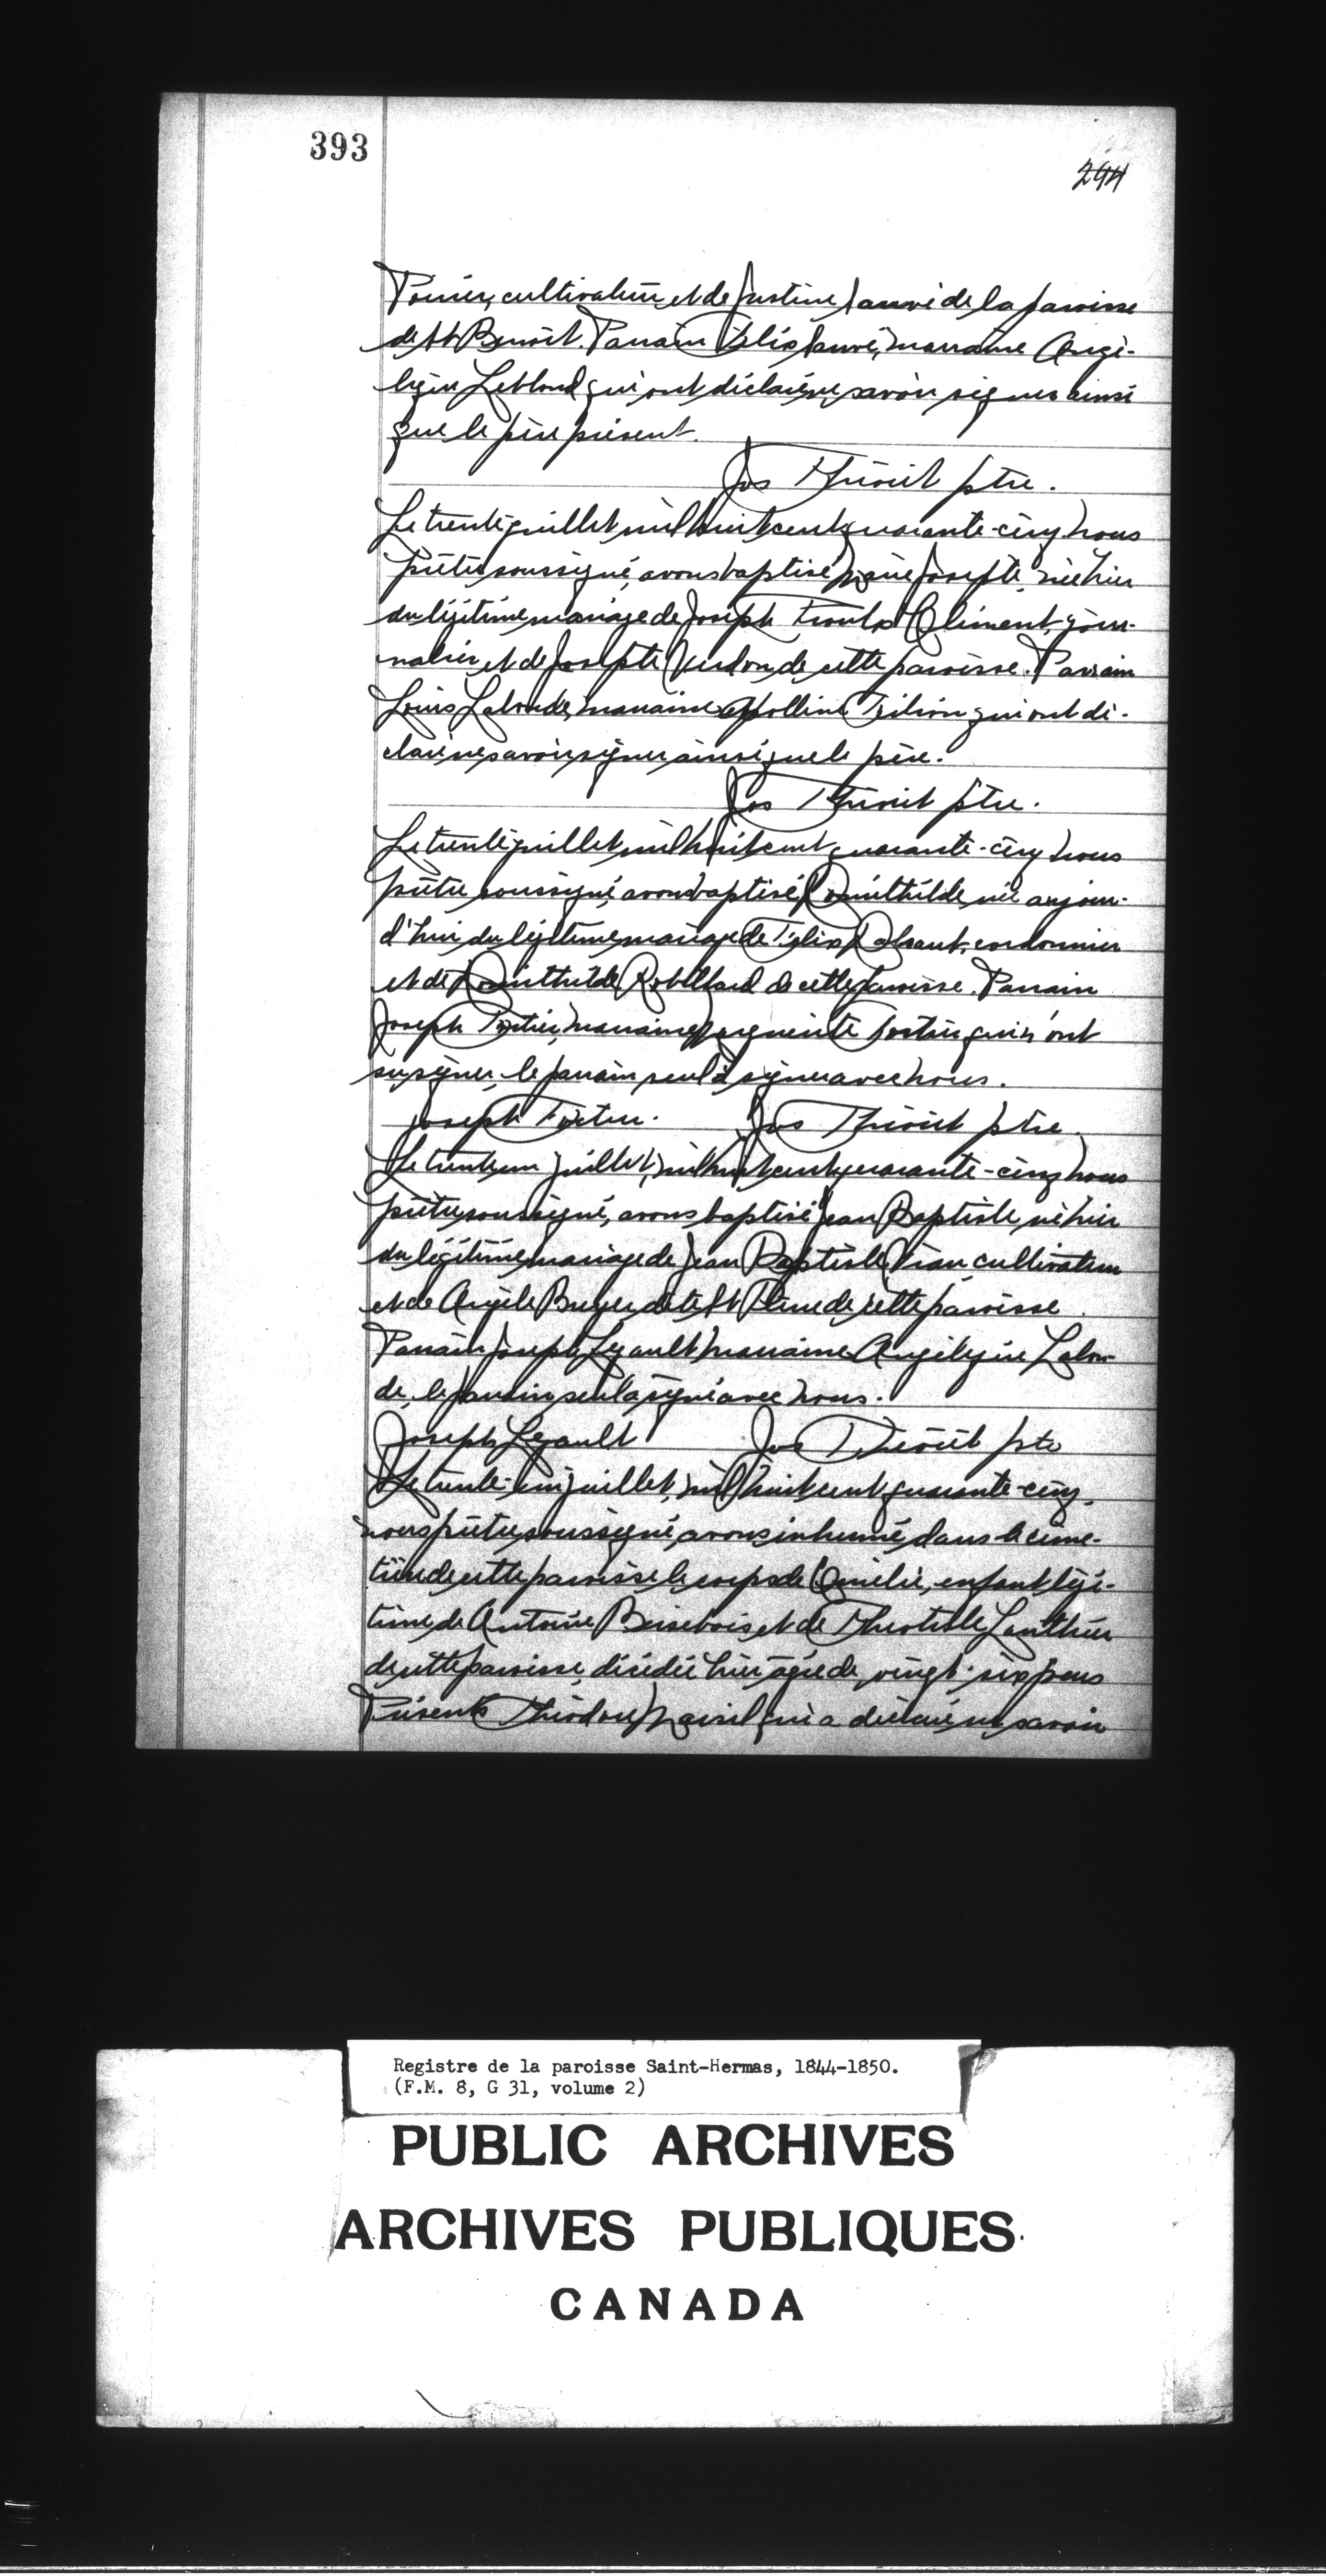 393
244
Poirier, cultivateur et de Justine Sauvé de la paroisse
de St Benoit. Parrain Félix Sauvé, marraine Angé-
lique Leblond qui ont déclaré ne savoir signer ainsi
que le père présent.
Jos Théoret ptre.
Le trente juillet mil huit cent quarante-cinq nous
prêtre soussigné, avons baptisé Marie Josephte, née hier
du légitime mariage de Joseph Proulx Clément, jour-
nalier et de Josephte Verdon de cette paroisse. Parrain
Louis Lalonde, marraine Apolline qui ont dé-
claré ne savoir signer ainsi que le père.
Jos Théoret ptre.
Le trente juillet mil huit cent quarante-cinq nous
prêtre soussigné, avons baptisé Domithilde née aujour-
d'hui du légitime mariage de Félix cordonnier
et de Domithilde Robillard de cette paroisse. Parrain
Joseph Fortier, marraine Marguerite Fortier qui n'ont
su signer, le parrain seul a signer avec nous.
Joseph Fortier. Jos Théoret ptre.
Le trente un juillet, mil huit cent quarante-cinq nous
prêtre soussigné, avons baptisé Jean Baptiste né hier
du légitime mariage de Jean Baptiste Viau, cultivateur
et de Angèle de la St Pierre de cette paroisse
Parrain Joseph Legault marraine Angélique Lalon-
de, le parrain seul a signé avec nous.
Joseph Legault Jos Théoret ptre
Le trente-un juillet, mil huit cent quarante-cinq,
nous prêtre soussigné, avons inhumé dans le cime-
tière de cette paroisse le corps de Emélie, enfant légi-
time de Antoine Brisebois et de Théotiste Lanthier
de cette paroisse, décédée hier âgée de vingt-six jours
Présents Théodore qui a déclaré ne savoir
Registre de la paroisse Saint-Hermas, 1844-1850.
(F.M. 8, G 31, volume 2)
PUBLIC ARCHIVES
ARCHIVES PUBLIQUES
CANADA